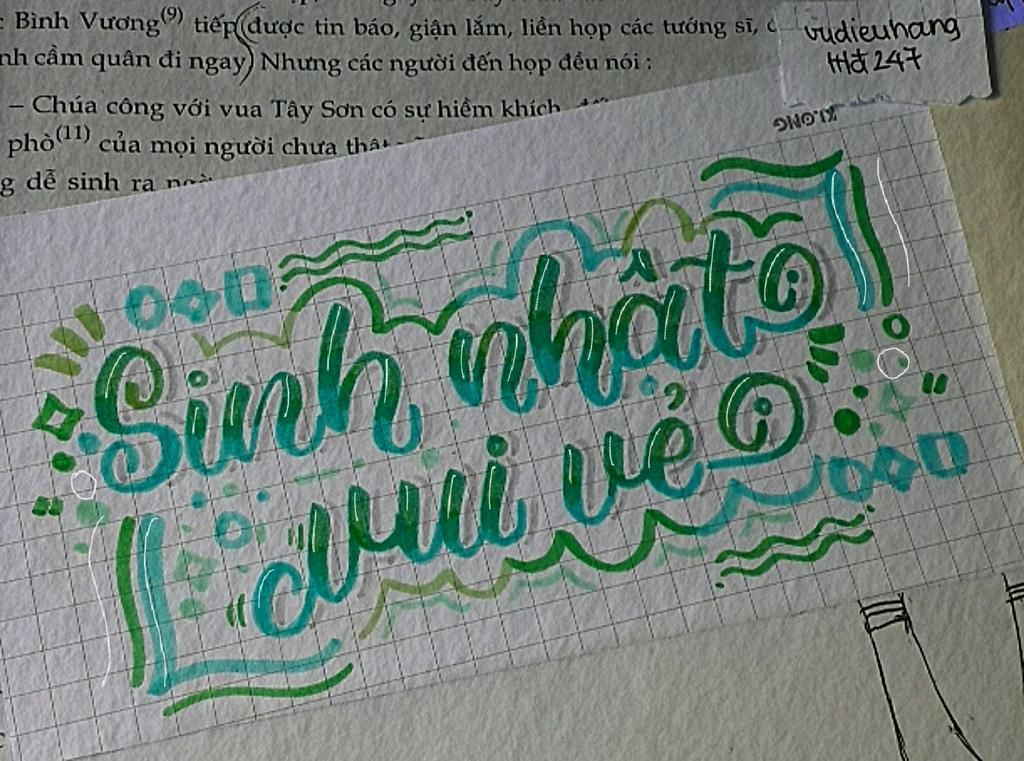 Bình Vương(9) tiếp (được tin báo, giận lắm, liền họp các tướng sĩ,
cầm quân đi ngay) Nhưng các người đến họp đều nói :
– Chúa công với vua Tây Sơn có sự hiềm khích
phò(11) của mọi người chưa
dễ sinh ra
vudieuhang
Hđ 247
KLONG
Sinh nhật
vui vẻ